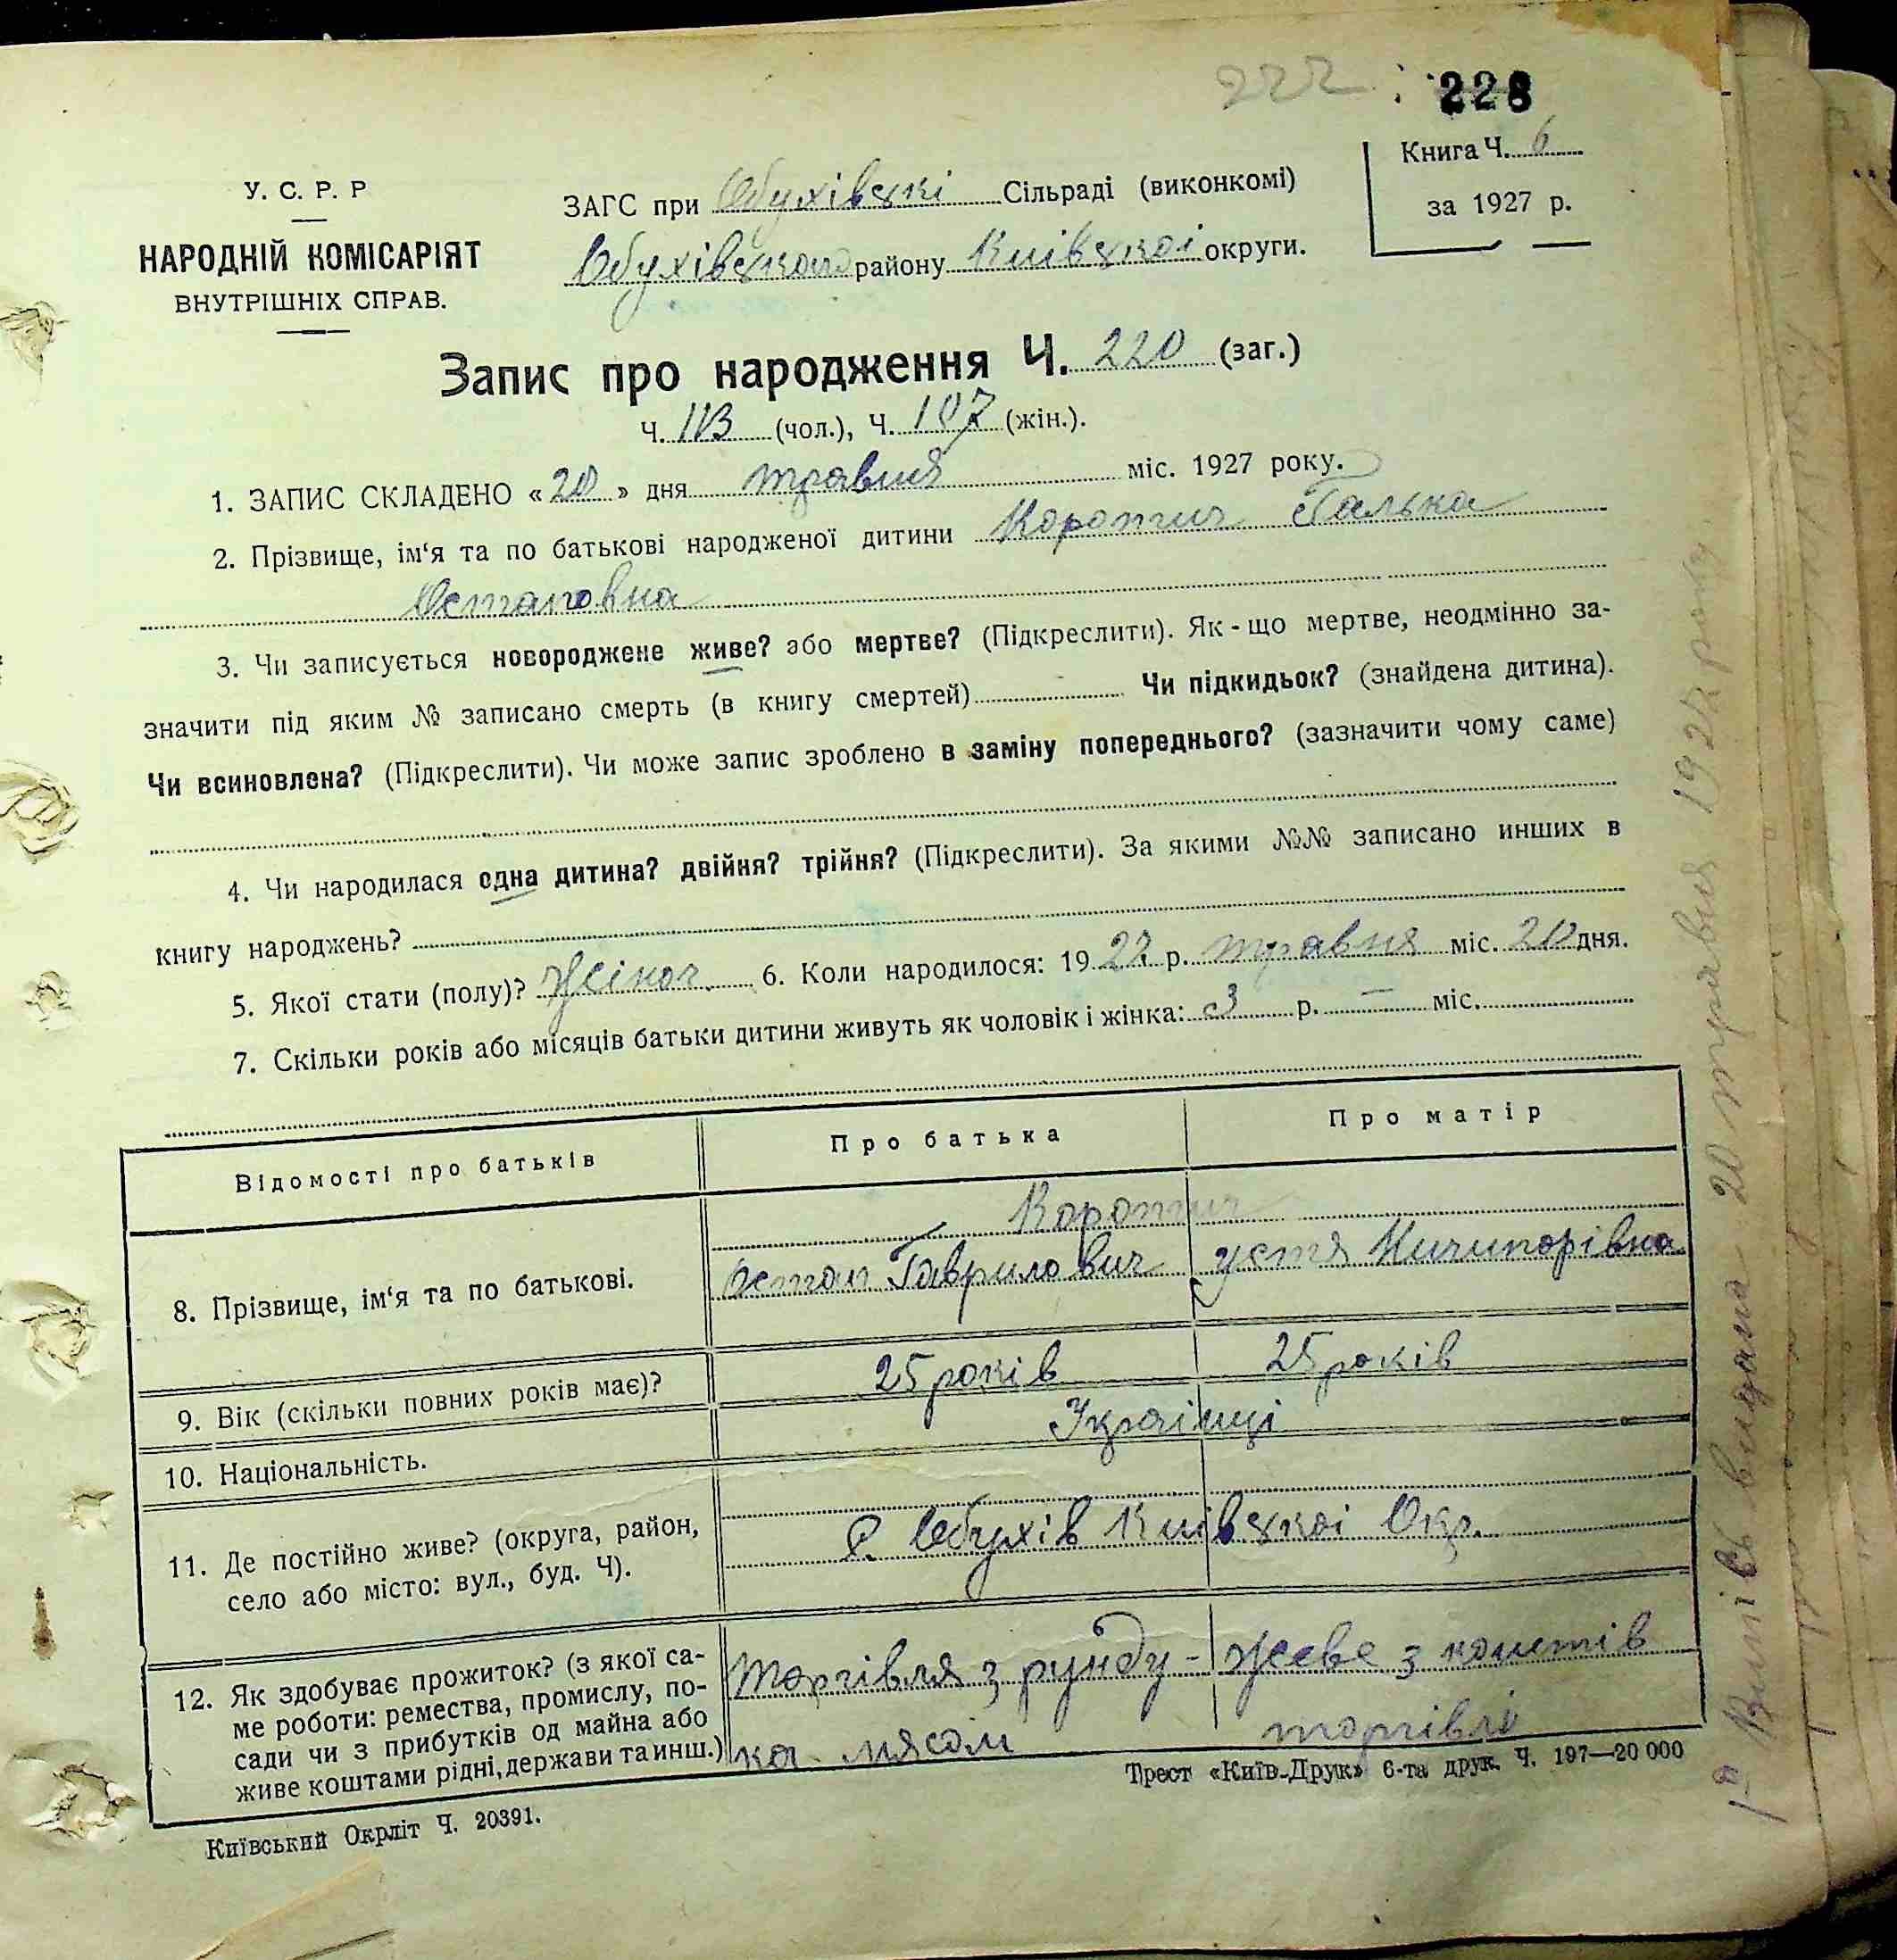 222 228
Книга Ч. 6
за 1927 р.
У. С. Р. Р
НАРОДНІЙ КОМІСАРІЯТ
ВНУТРІШНІХ СПРАВ.
ЗАГС при Обухівскі Сільраді (виконкомі)
Обухівского району Київскоі округи.
Запис про народження Ч. 220 (заг.)
Ч. 113 (чол.), Ч. 107 (жін.).
1. ЗАПИС СКЛАДЕНО «20» дня травня міс. 1927 року.
2. Прізвище, ім‘я та по батькові народженої дитини Коротич Галька
Остаповна
3. Чи записується новороджене живе? або мертве? (Підкреслити). Як-що мертве, неодмінно за-
значити під яким № записано смерть (в книгу смертей) Чи підкидьок? (знайдена дитина).
Чи всиновлена? (Підкреслити). Чи може запис зроблено в заміну попереднього? (зазначити чому саме)
4. Чи народилася одна дитина? двійня? трійня? (Підкреслити). За якими №№ записано инших в
книгу народжень?
5. Якої стати (полу)? Жіноч. 6. Коли народилося: 1927 р. травня міс. 20 дня.
7. Скільки років або місяців батьки дитини живуть як чоловік і жінка: 3 р. — міс.
Відомості про батьків Про батька Про матір
Коротич
8. Прізвище, ім‘я та по батькові. Остап Гаврилович Устя Ничипорівна
9. Вік (скільки повних років має)? 25 років 25 років
10. Національність. Українці
11. Де постійно живе? (округа, район,
село або місто: вул., буд. Ч).
с. Обухів Київскоі Окр.
12. Як здобуває прожиток? (з якої са-
ме роботи: ремества, промислу, по-
сади чи з прибутків од майна або
живе коштами рідні, держави та инш.)
торгівля з рунду-
ка мясом
живе з коштів
торгівлі
Київський Окрліт Ч. 20391.
Трест «Київ-Друк» 6-та друк. Ч. 197—20 000
Витяг видано 20 травня 1927 року